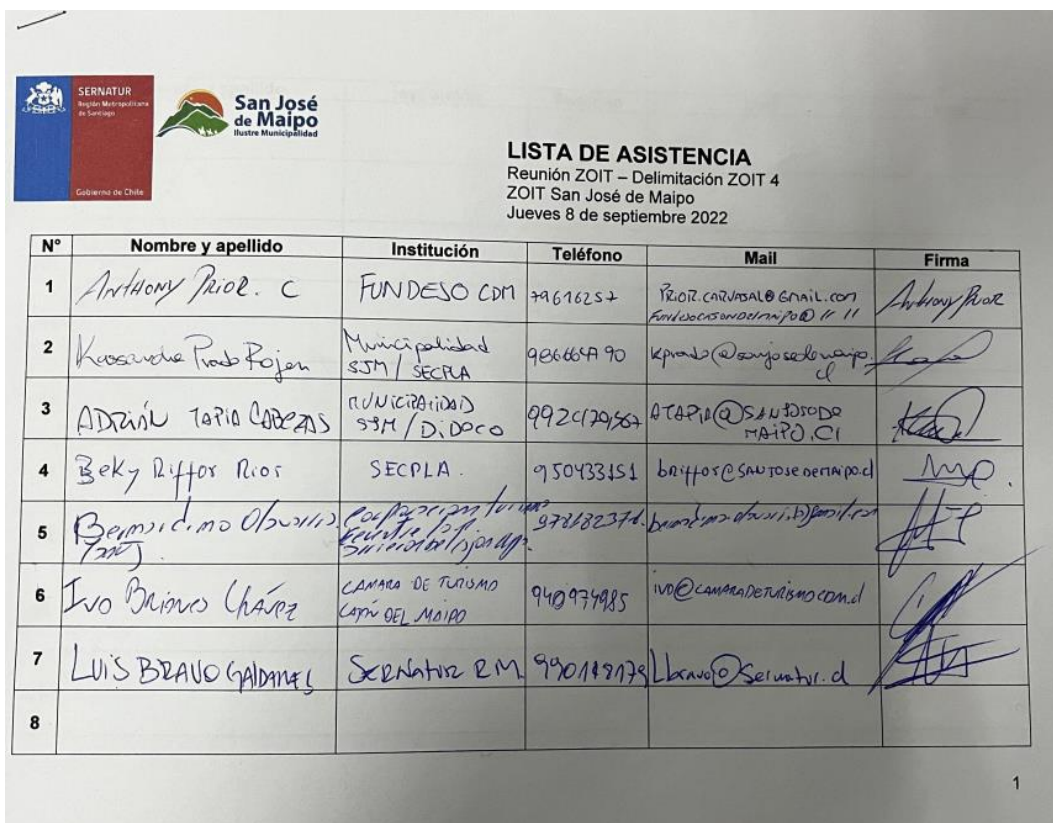 SERNATUR
Región Metropolitana
de Santiago
Gobierno de Chile
San José
de Maipo
Ilustre Municipalidad
LISTA DE ASISTENCIA
Reunión ZOIT – Delimitación ZOIT 4
ZOIT San José de Maipo
Jueves 8 de septiembre 2022
N° Nombre y apellido Institución Teléfono Mail Firma
1 ANTHONY PRIOR. C FUNDESO CDM 79616257 PRIOR.CARVAJAL@GMAIL.COM Anthony Prior
2 Prado Rojas Municipalidad
SJM / SECPLA
3 ADRIÁN TAPIA CABEZAS MUNICIPALIDAD
SJM / DIDECO ATAPIA@SANJOSEDE
MAIPO.Cl
4 Beky Riffor Rios SECPLA. 950433151 briffor@SANJOSEDEMAIPO.cl
5
6 Ivo Briones Chávez CAMARA DE TURISMO
CAJÓN DEL MAIPO 940974985 ivo@CAMARADETURISMOCDM.cl
7 LUIS BRAVO GALDAMES SERNATUR RM 990148179 Lbravo@Sernatur.cl
8
1